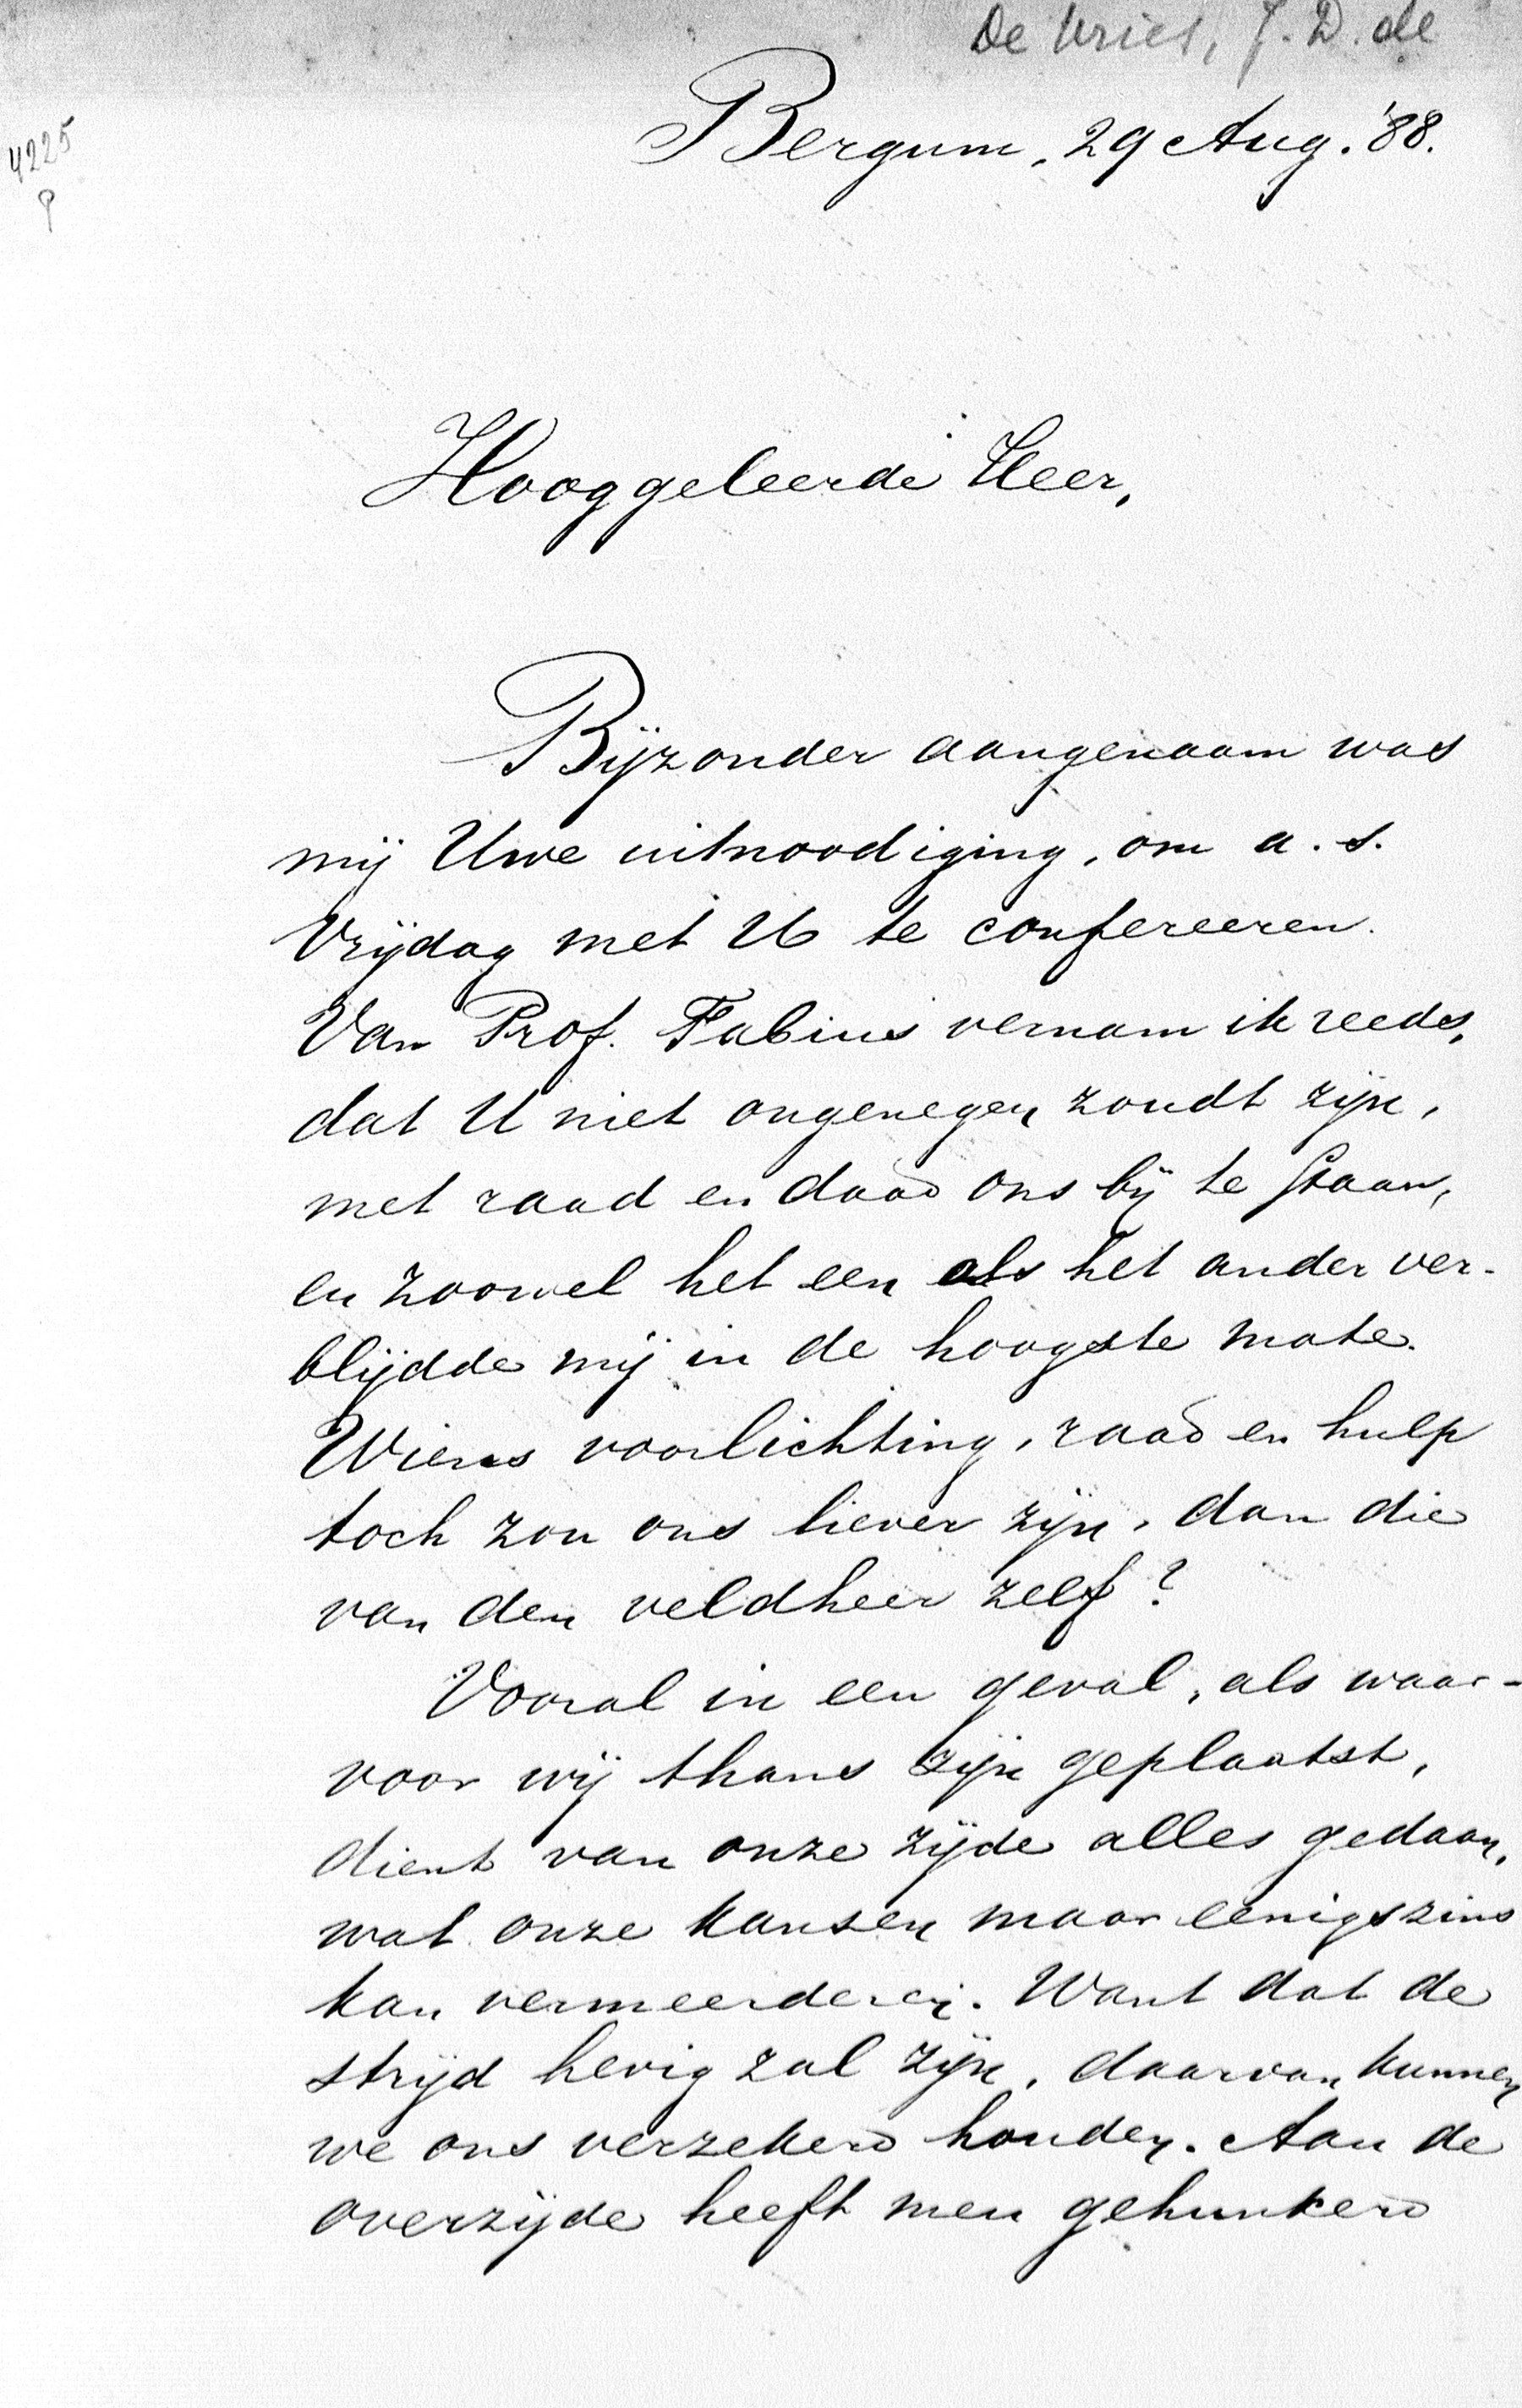 De Vries, J. D. de
4225
Bergum, 29 Aug. '88.
Hooggeleerde Heer,
Bijzonder aangenaam was
mij Uwe uitnoodiging, om a. s.
Vrijdag met U te confereeren.
Van Prof. Fabius vernam ik reeds,
dat U niet ongenegen zoudt zijn,
met raad en daad ons bij te staan,
en zoowel het een als het ander ver-
blijdde mij in de hoogste mate.
Wiens voorlichting, raad en hulp
toch zou ons liever zijn, dan die
van den veldheer zelf?
Vooral in een geval, als waar-
voor wij thans zijn geplaatst,
dient van onze zijde alles gedaan,
wat onze kansen maar eenigszins
kan vermeerderen. Want dat de
strijd hevig zal zijn, daarvan kunnen
we ons verzekerd houden. Aan de
overzijde heeft men gehunkerd